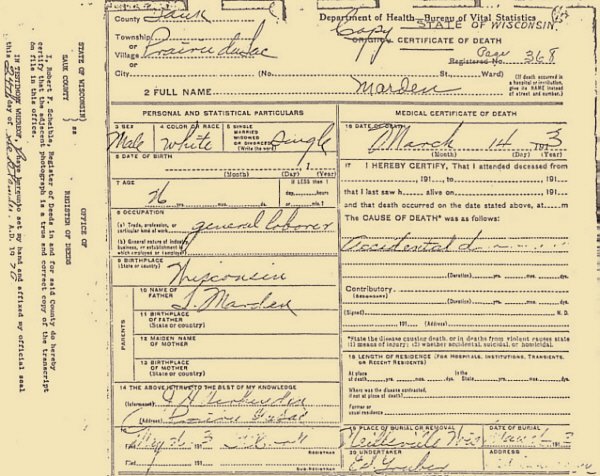 County Sauk
Department of Health—Bureau of Vital Statistics
STATE OF WISCONSIN
Township
or
Village Prairie du Sac
Copy
ORIGINAL CERTIFICATE OF DEATH
Page 368
Registered No.
City (No. St., Ward)
(If death occurred in
a hospital or institution,
give its NAME instead
of street and number.)
2 FULL NAME Marden
PERSONAL AND STATISTICAL PARTICULARS
3 SEX Male
4 COLOR OR RACE White
5 SINGLE
MARRIED
WIDOWED
OR DIVORCED
(Write the word) Single
6 DATE OF BIRTH
(Month) (Day) (Year)
7 AGE
26 yrs. mos. ds.
If LESS than 1
day, hours
or min.
8 OCCUPATION
(a) Trade, profession, or
particular kind of work general laborer
(b) General nature of industry,
business, or establishment in
which employed or (employer)
9 BIRTHPLACE
(State or country) Wisconsin
PARENTS
10 NAME OF
FATHER Marden
11 BIRTHPLACE
OF FATHER
(State or country)
12 MAIDEN NAME
OF MOTHER
13 BIRTHPLACE
OF MOTHER
(State or country)
14 THE ABOVE IS TRUE TO THE BEST OF MY KNOWLEDGE
(Informant)
(Address) Prairie du Sac
15
Filed 191
REGISTRAR
SUB REGISTRAR
MEDICAL CERTIFICATE OF DEATH
16 DATE OF DEATH
March 14 1913
(Month) (Day) (Year)
17 I HEREBY CERTIFY, That I attended deceased from
191 to 191
that I last saw h alive on 191
and that death occurred on the date stated above, at m.
The CAUSE OF DEATH* was as follows:
Accidental
(Duration) yrs. mos. ds.
Contributory
(SECONDARY)
(Duration) yrs. mos. ds.
(Signed) M. D.
191 (Address)
*State the disease causing death, or in deaths from violent causes state
(1) means of injury; (2) whether accidental, suicidal, or homicidal.
18 LENGTH OF RESIDENCE (FOR HOSPITALS, INSTITUTIONS, TRANSIENTS,
OR RECENT RESIDENTS)
At place
of death yrs. mos. ds.
In the
State yrs. mos. ds.
Where was the disease contracted,
if not at place of death?
Former or
usual residence
19 PLACE OF BURIAL OR REMOVAL
Neillsville Wis
DATE OF BURIAL
20 UNDERTAKER
ADDRESS
OFFICE OF
REGISTER OF DEEDS
STATE OF WISCONSIN)
) ss
SAUK COUNTY )
I, Robert F. Scheible, Register of Deeds in and for said County do hereby
certify that the adjacent photograph is a true and correct copy of the transcript
on file in this office.
IN TESTIMONY WHEREOF, I have hereunto set my hand and affixed my official seal
this 24th day of A.D. 19